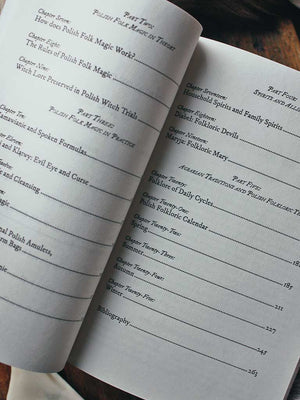 Part Two:
Polish Folk Magic in Theory
Chapter Seven:
How does Polish Folk Magic Work?
Chapter Eight:
The Rules of Polish Folk Magic
Chapter Nine:
Witch Lore Preserved in Polish Witch Trials
Part Three:
Polish Folk Magic in Practice
Chapter Ten:
Zamawianie and Spoken Formulas
Eleven:
and Klątwy: Evil Eye and Curse
and Cleansing
Magic
Polish Amulets,
Bags
Part Four:
Spirits and
Chapter Seventeen:
Household Spirits and Family Spirits
Chapter Eighteen:
Diabeł: Folkloric Devils
Chapter Nineteen:
Maryja: Folkloric Mary
Part Five:
Agrarian Traditions and Polish Folklore
Chapter Twenty:
Folklore of Daily Cycles
Chapter Twenty-One:
Polish Folkloric Calendar
Chapter Twenty-Two:
Spring
Chapter Twenty-Three:
Summer
Chapter Twenty-Four:
Autumn 211
Chapter Twenty-Five:
Winter 227
245
Bibliography 263